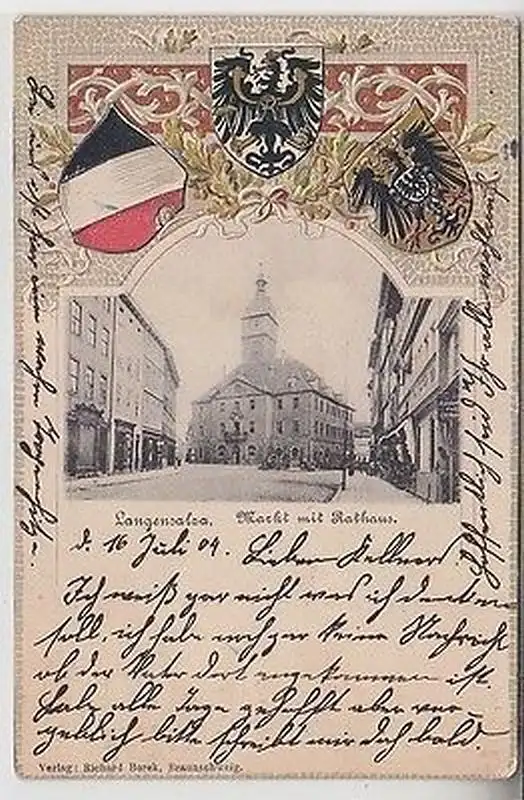 Langensalza. Markt mit Rathaus.
d. 16 Juli 04. Lieben Kellners!
Ich weiß gar nicht was ich denken
soll, ich habe noch gar keine Nachricht
ob der Vater dort angekommen ist.
Habe alle Tage gehofft aber ver-
geblich bitte schreibt mir doch bald.
Hoffentlich seid Ihr alle
Verlag: Richard Borek, Braunschweig.